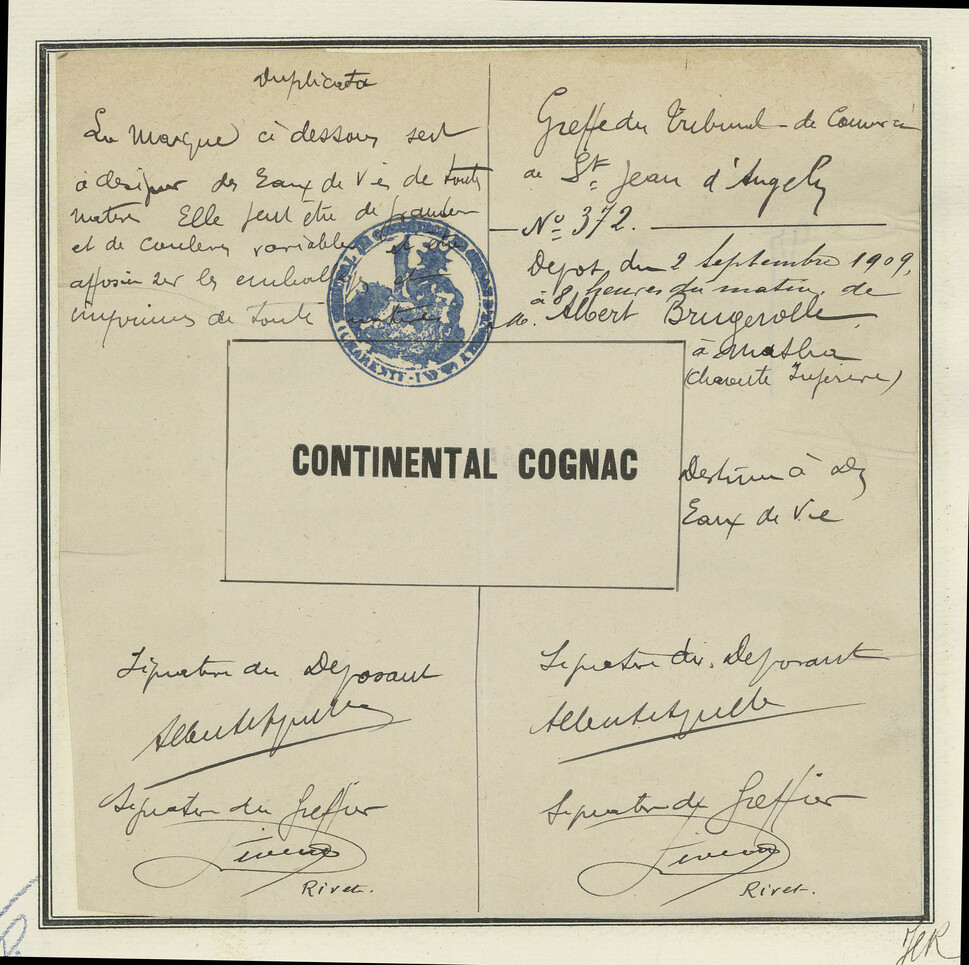 Duplicata
La Marque ci dessous sert
à designer des Eaux de Vie de toute
nature Elle peut être de
et de couleurs variables et
sur les
imprimes de toute nature
Greffe du Tribunal de Commerce
de St Jean d'Angely
No 372.
Dépot du 2 Septembre 1909,
à 8 heures du matin, de
M. Albert Brugerolle
à Matha
(Charente Inférieure)
CONTINENTAL COGNAC
Destiné à des
Eaux de Vie
Signature du Déposant
Signature du Greffier
Rivet.
Signature du Déposant
Signature du Greffier
Rivet.